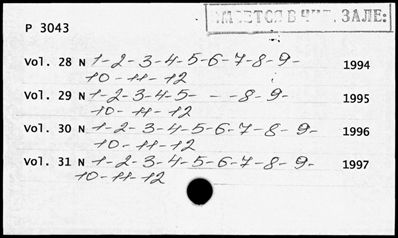 ИМЕЕТСЯ В ЧИТ. ЗАЛЕ:
P 3043
Vol. 28 N 1-2-3-4-5-6-7-8-9- 1994
10-11-12
Vol. 29 N 1-2-3-4-5- - -8-9- 1995
10-11-12
Vol. 30 N 1-2-3-4-5-6-7-8-9- 1996
10-11-12
Vol. 31 N 1-2-3-4-5-6-7-8-9- 1997
10-11-12